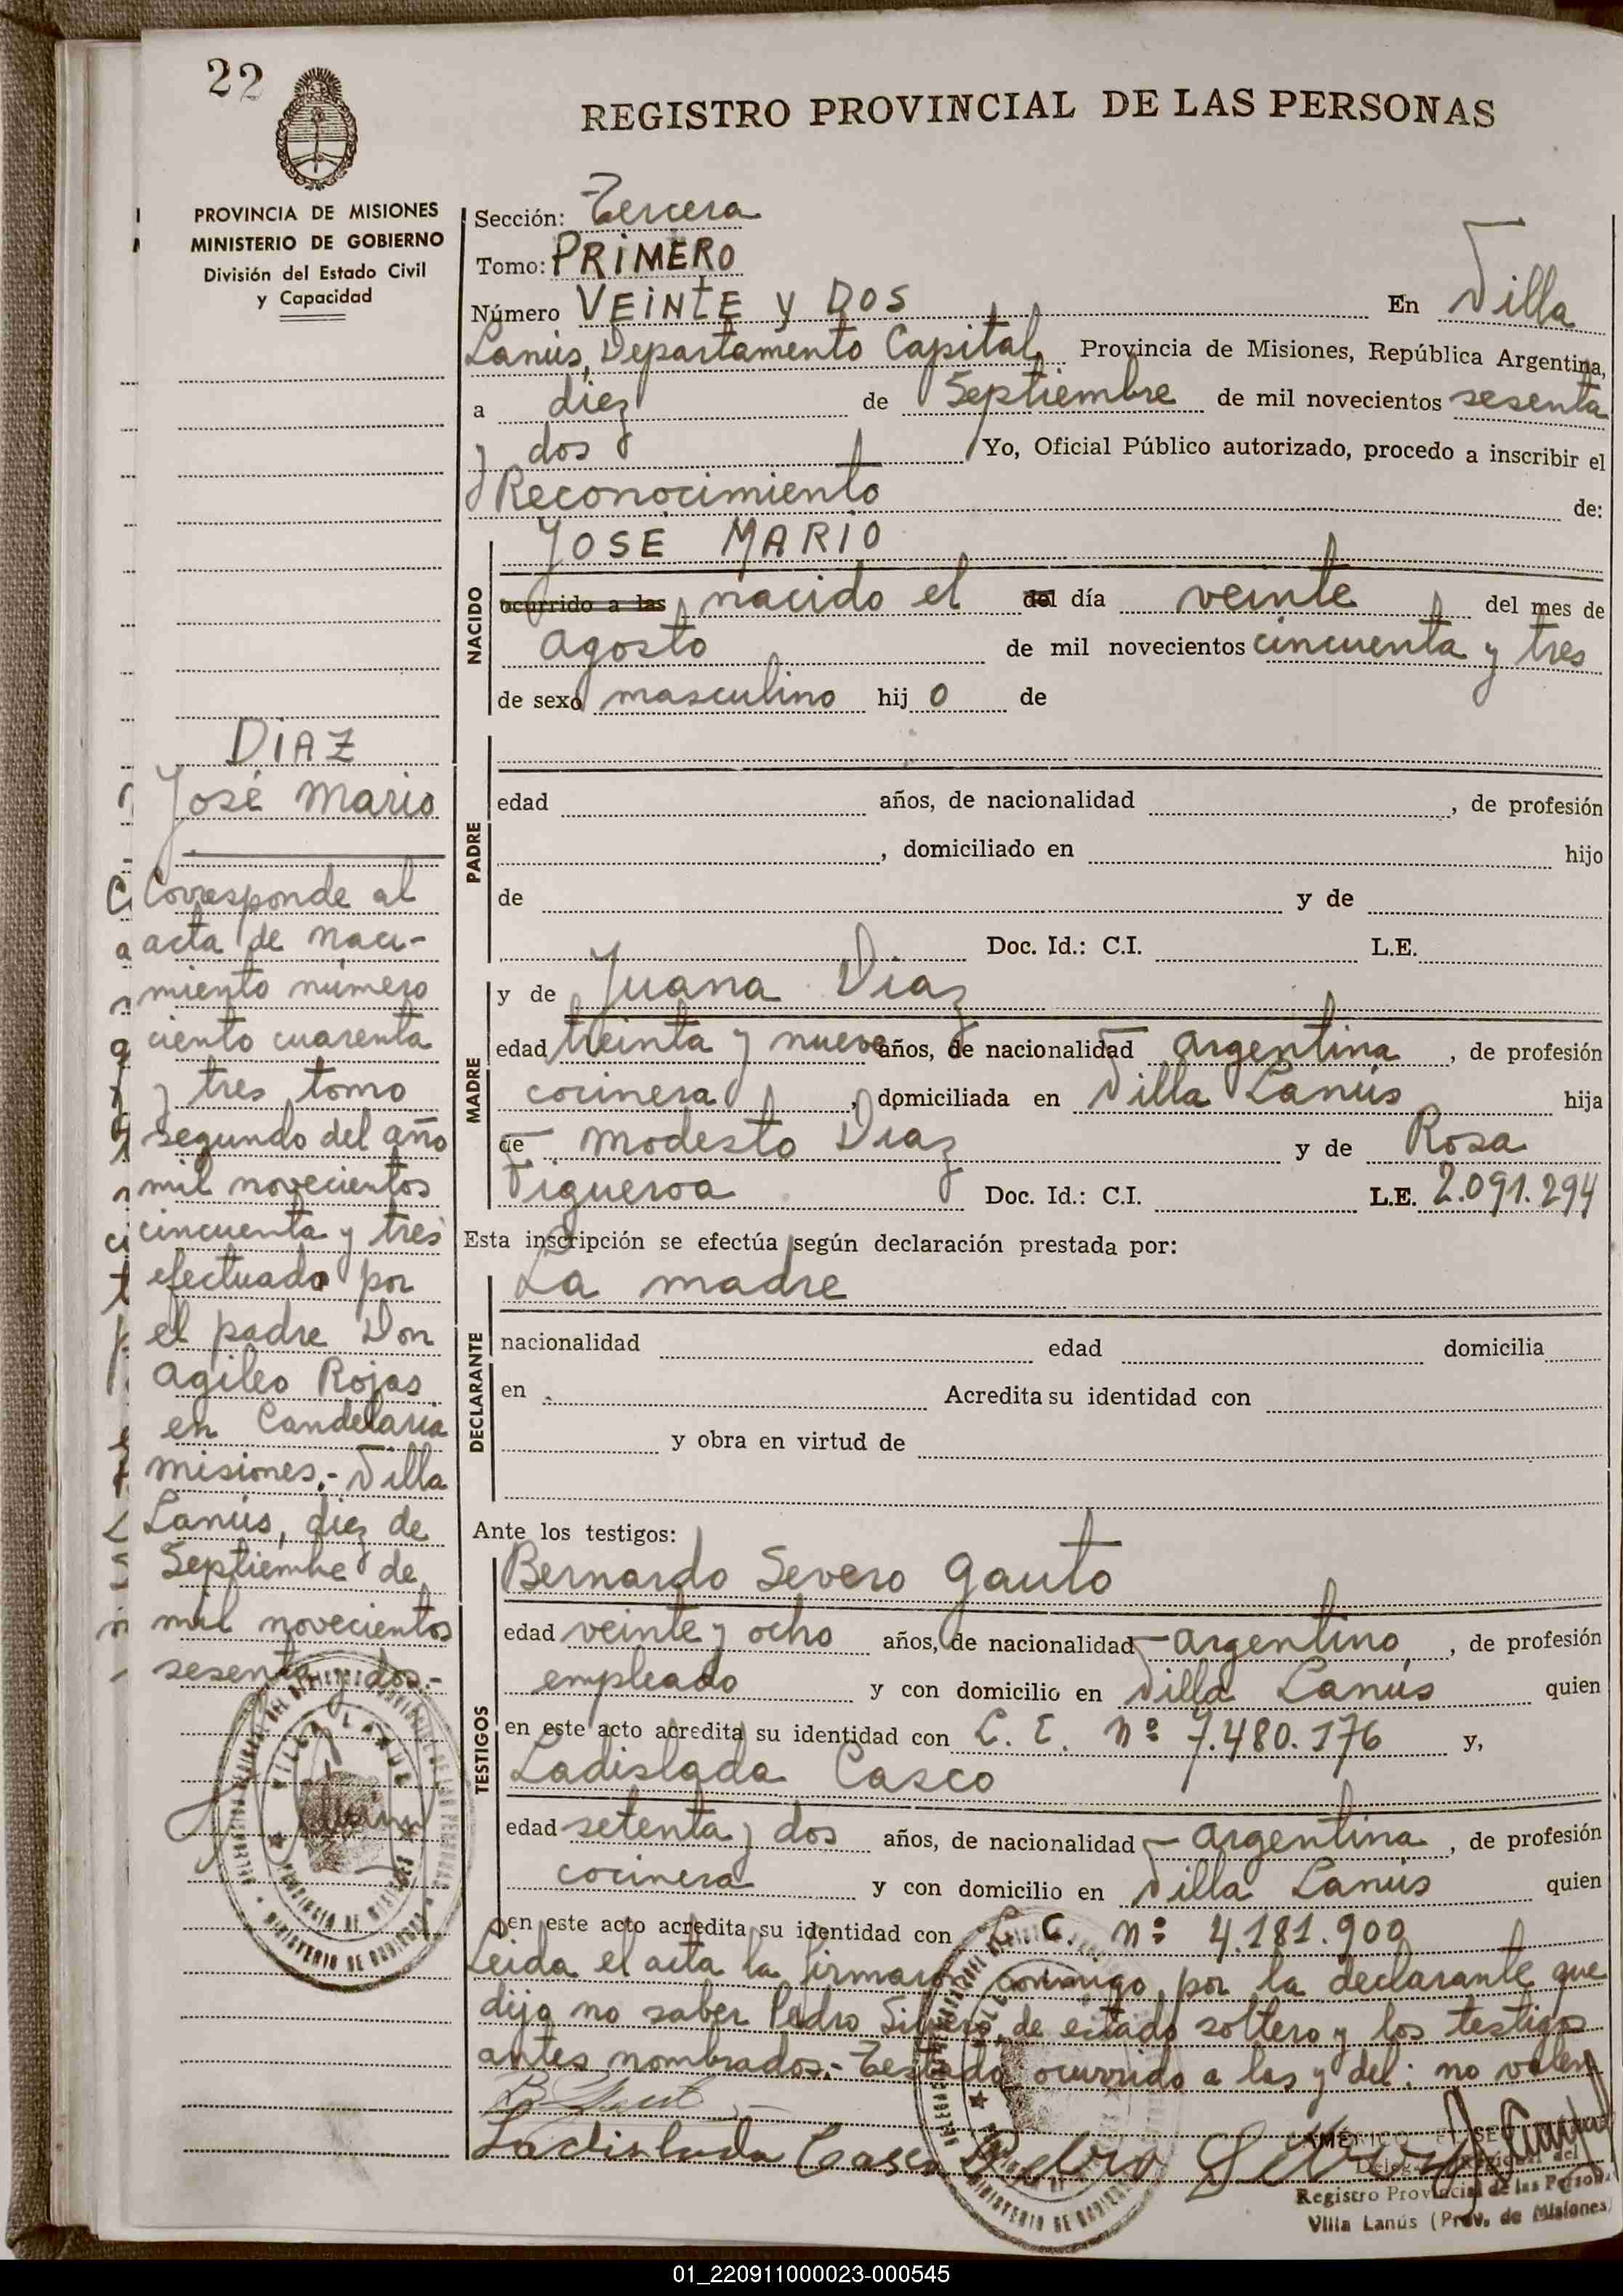 22
REGISTRO PROVINCIAL DE LAS PERSONAS
PROVINCIA DE MISIONES
MINISTERIO DE GOBIERNO
División del Estado Civil
y Capacidad
Sección: Tercera
Tomo: PRIMERO
Número VEINTE y DOS En Villa
Lanús, Departamento Capital, Provincia de Misiones, República Argentina,
a diez de Septiembre de mil novecientos sesenta
y dos Yo, Oficial Público autorizado, procedo a inscribir el
Reconocimiento de:
JOSÉ MARIO
NACIDO
ocurrido a las nacido el del día veinte del mes de
agosto de mil novecientos cincuenta y tres
de sexo masculino hij o de
PADRE
edad años, de nacionalidad , de profesión
, domiciliado en hijo
de y de
Doc. Id.: C.I. L.E.
MADRE
y de Juana Diaz
edad treinta y nueve años, de nacionalidad argentina , de profesión
cocinera , domiciliada en Villa Lanús hija
de modesto Diaz y de Rosa
Figueroa Doc. Id.: C.I. L.E. 2.091.294
Esta inscripción se efectúa según declaración prestada por:
DECLARANTE
La madre
nacionalidad edad domicilia
en Acredita su identidad con
y obra en virtud de
Ante los testigos:
TESTIGOS
Bernardo Severo Gauto
edad veinte y ocho años, de nacionalidad argentino , de profesión
empleado y con domicilio en Villa Lanús quien
en este acto acredita su identidad con nº 7.480.176 y,
Ladislada Casco
edad setenta y dos años, de nacionalidad argentina , de profesión
cocinera y con domicilio en Villa Lanús quien
en este acto acredita su identidad con L. C. nº 4.181.900
Leida el acta la firmaron conmigo, por la declarante que
dijo no saber Pedro de estado soltero y los testigos
antes nombrados.- Testado ocurrido a las y del: no valen
Ladislada Casco Pedro
AMÉRICO
Delegado Regional del
Registro Provincial de las Personas
Villa Lanús (Prov. de Misiones)
DIAZ
José Mario
Corresponde al
acta de naci-
miento número
ciento cuarenta
y tres tomo
segundo del año
mil novecientos
cincuenta y tres
efectuado por
el padre Don
Agileo Rojas
en Candelaria
misiones.- Villa
Lanús, diez de
Septiembre de
mil novecientos
sesenta y dos.-
VILLA LANUS
PROVINCIA DE MISIONES
MINISTERIO DE GOBIERNO
01_220911000023-000545